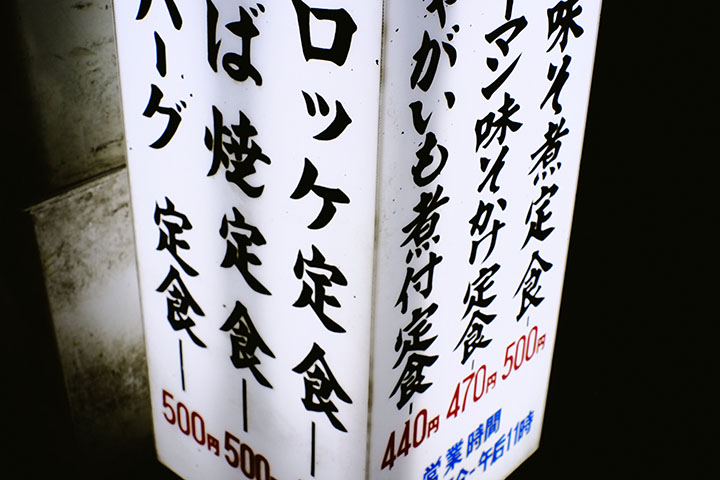 味そ煮定食 500円
ーマン味そかけ定食 470円
がいも煮付定食 440円
営業時間
午后11時
ロッケ定食
ば焼定食 500
バーグ 定食 500円